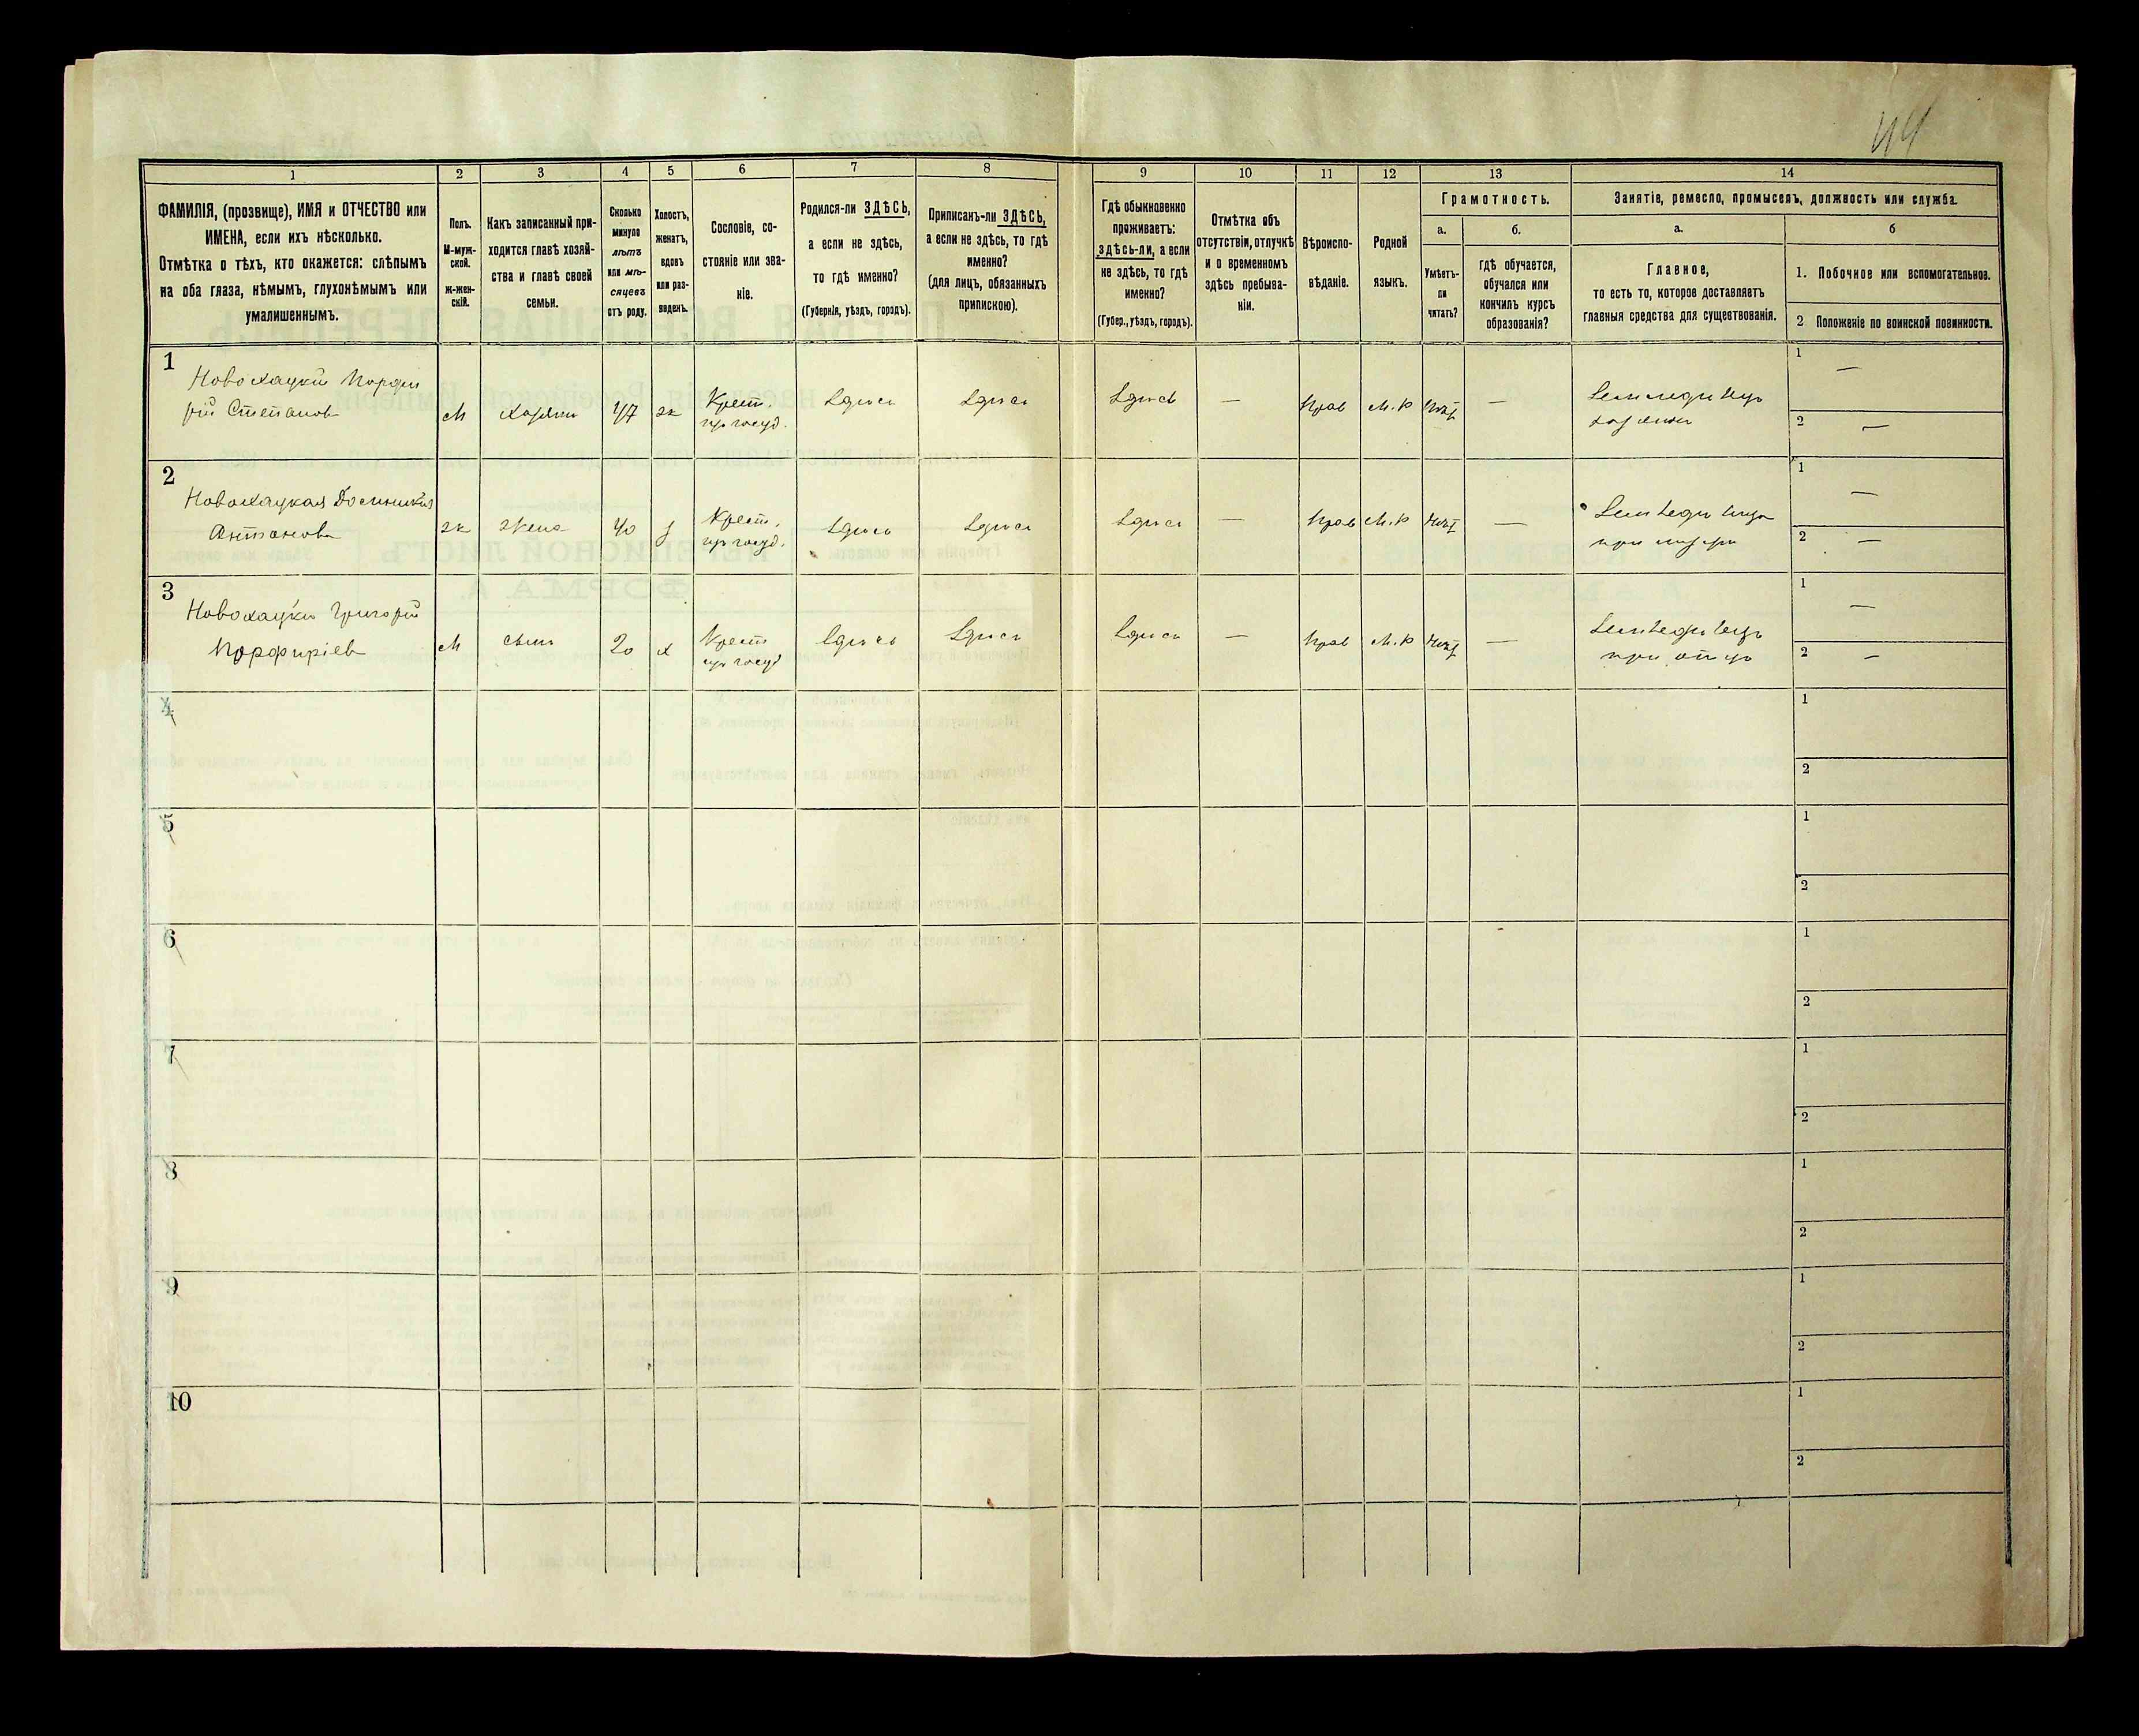 44
1 2 3 4 5 6 7 8 9 10 11 12 13 14
ФАМИЛІЯ, (прозвище), ИМЯ и ОТЧЕСТВО или
ИМЕНА, если ихъ нѣсколько.
Отмѣтка о тѣхъ, кто окажется: слѣпымъ
на оба глаза, нѣмымъ, глухонѣмымъ или
умалишеннымъ.
Полъ.
М-муж-
ской.
ж-жен-
скій.
Какъ записанный при-
ходится главѣ хозяй-
ства и главѣ своей
семьи.
Сколько
минуло
лѣтъ
или мѣ-
сяцевъ
отъ роду.
Холостъ,
женатъ,
вдовъ
или раз-
веденъ.
Сословіе, со-
стояніе или зва-
ніе.
Родился-ли ЗДѢСЬ,
а если не здѣсь,
то гдѣ именно?
(Губернія, уѣздъ, городъ).
Приписанъ-ли ЗДѢСЬ,
а если не здѣсь, то гдѣ
именно?
(для лицъ, обязанныхъ
припискою).
Гдѣ обыкновенно
проживаетъ:
здѣсь-ли, а если
не здѣсь, то гдѣ
именно?
(Губер., уѣздъ, городъ).
Отмѣтка объ
отсутствіи, отлучкѣ
и о временномъ
здѣсь пребыва-
ніи.
Вѣроиспо-
вѣданіе.
Родной
языкъ.
Грамотность.
а.
Умѣетъ-
ли
читать?
б.
гдѣ обучается,
обучался или
кончилъ курсъ
образованія?
Занятіе, ремесло, промыселъ, должность или служба.
а.
Главное,
то есть то, которое доставляетъ
главныя средства для существованія.
б
1. Побочное или вспомогательное.
2 Положеніе по воинской повинности.
1
Новохацкій Порфи
рій Степановъ
М
хозяинъ
47
ж
Крест.
здѣсь
здѣсь
здѣсь
—
прав
М.р
нѣтъ
—
Земледѣлецъ
хозяинъ
1 —
2 —
2
Новохацкая
Антонова
ж
жена
40
з
Крест.
здѣсь
здѣсь
здѣсь
—
прав
М.р
нѣтъ
—
при
1 —
2 —
3
Новохацкій Григорій
Порфиріевъ
М
сынъ
20
х
Крест
здѣсь
здѣсь
здѣсь
—
прав
М.р
нѣтъ
—
Земледѣлецъ
при отцѣ
1 —
2 —
4
1
2
5
1
2
6
1
2
7
1
2
8
1
2
9
1
2
10
1
2